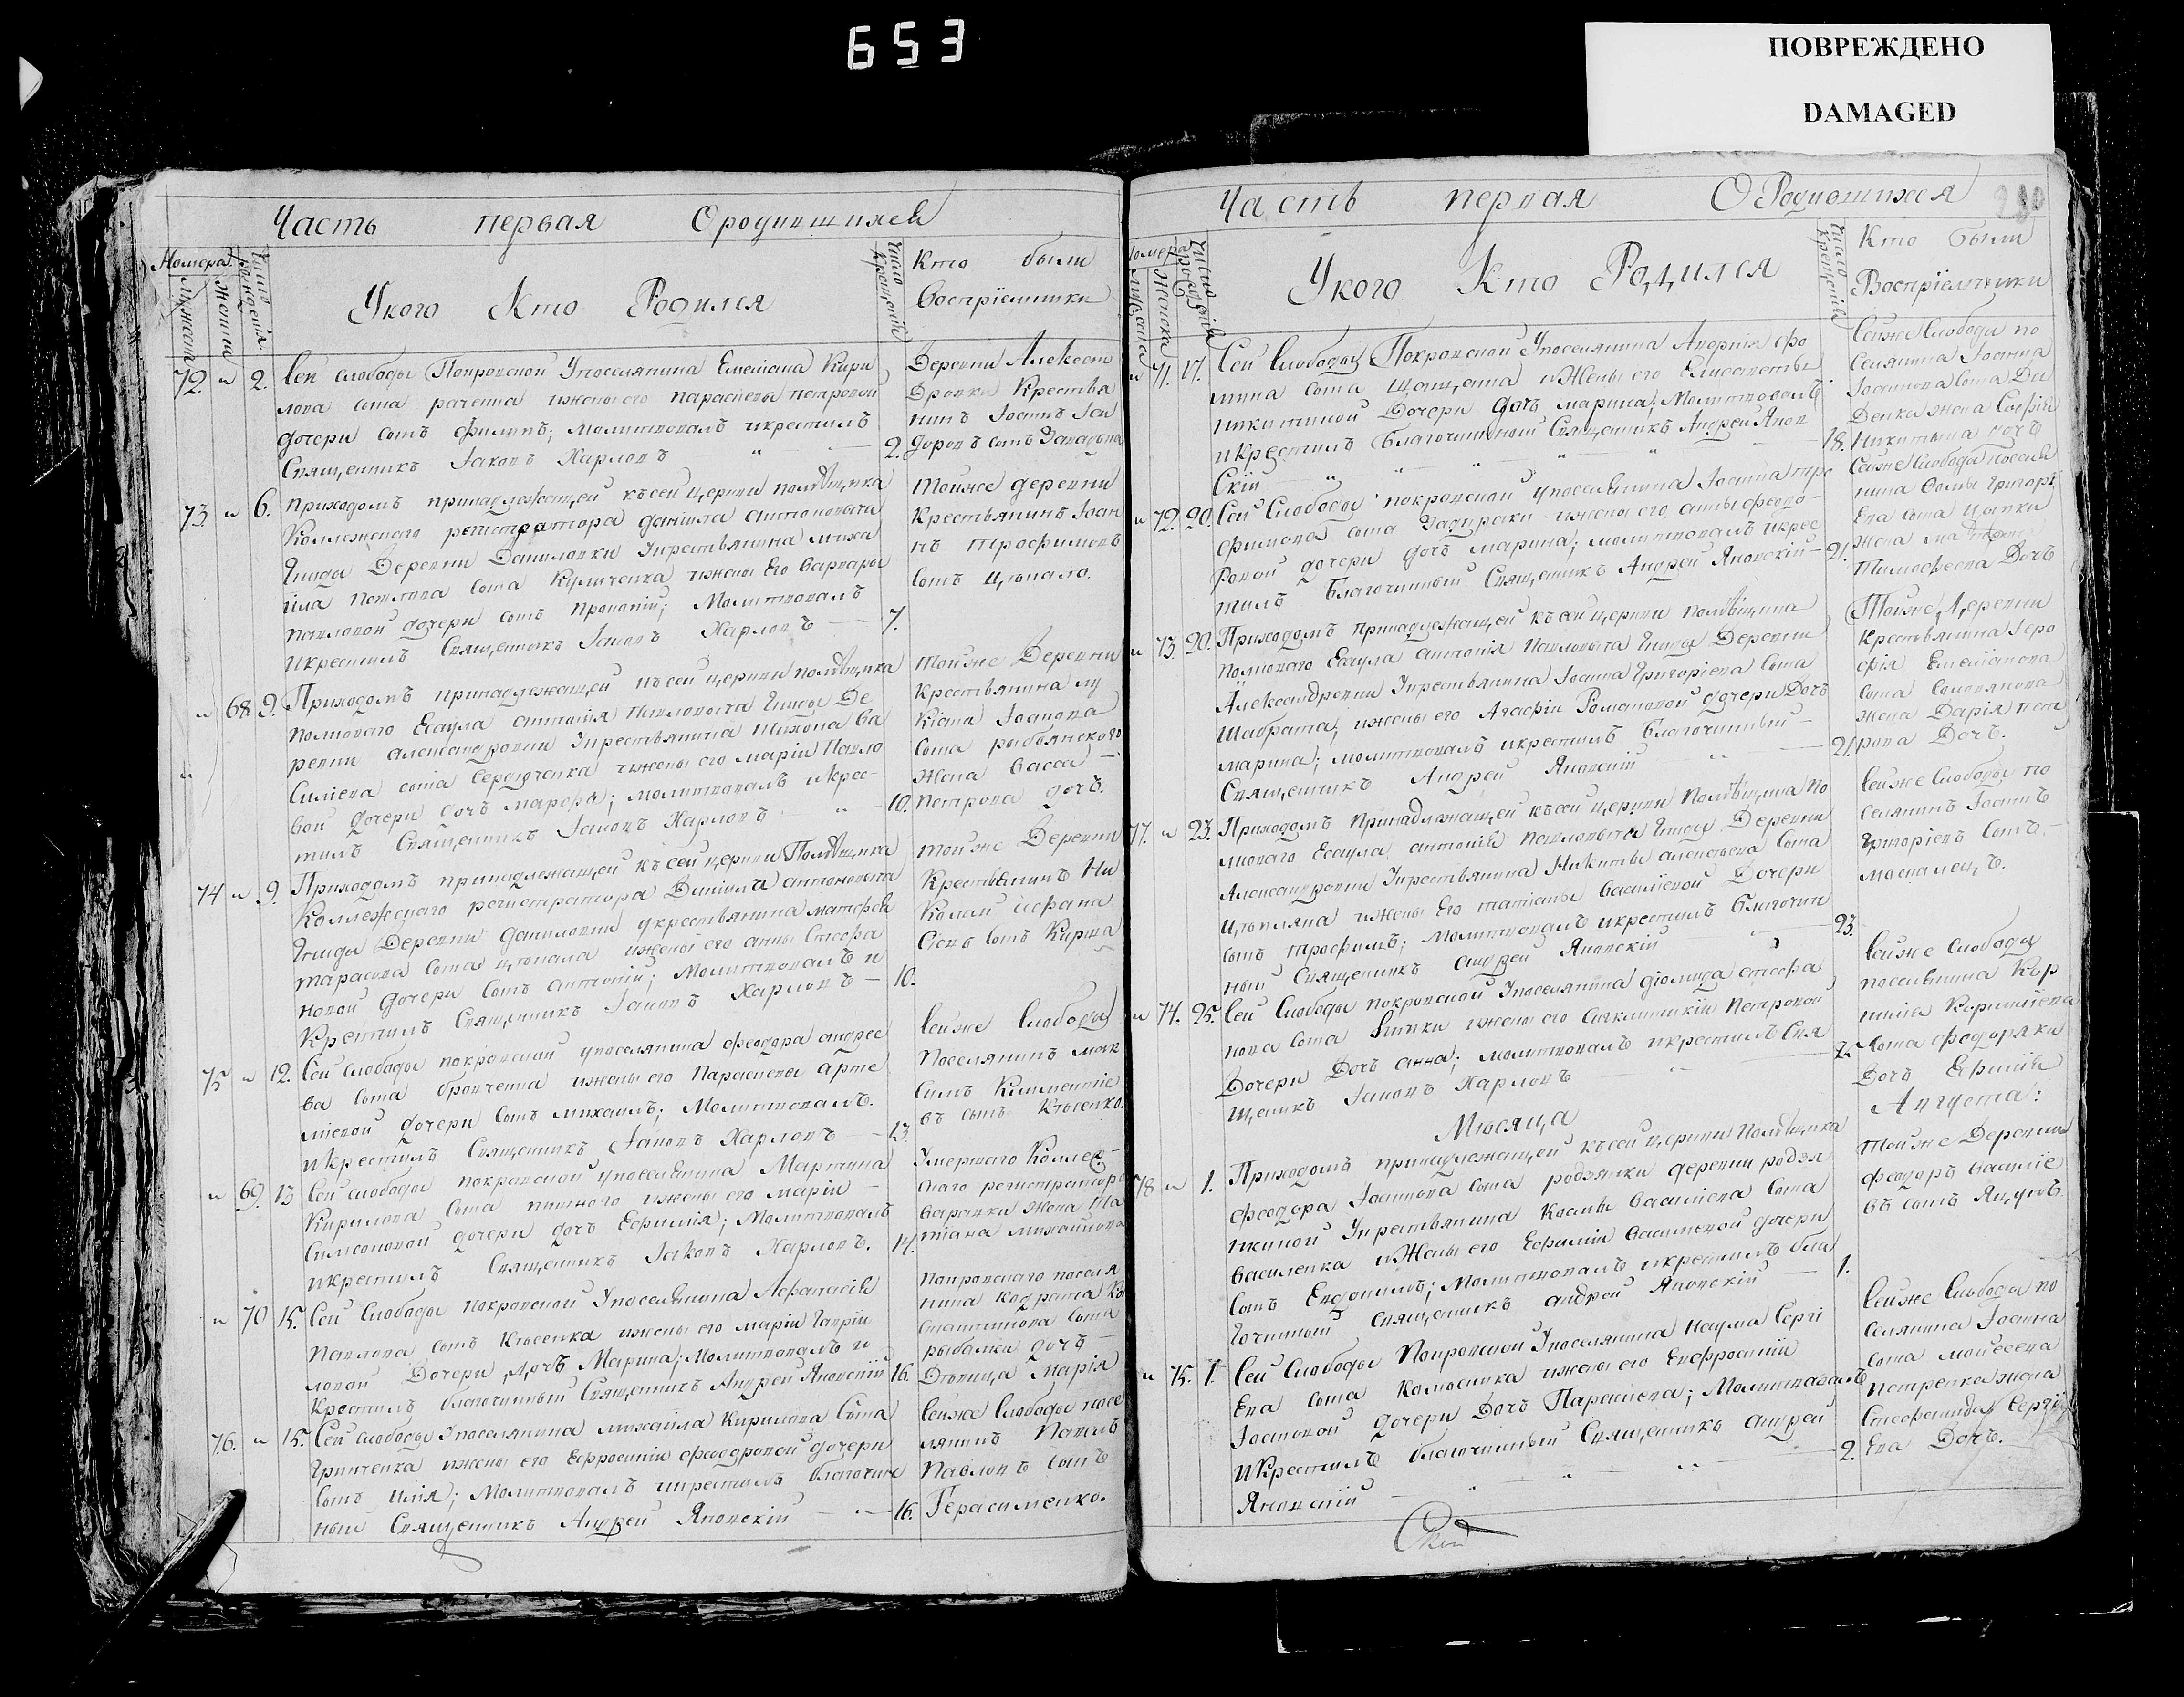 653
ПОВРЕЖДЕНО
DAMAGED
Часть первая О родившихся
Номера
Число рождения
мужеска
женска
У кого Кто Родился
Число крещения
Кто были
Воспріемники
72. " 2. Сей слободы Покровской Упоселянина Емеліана Кири
лова сына иженыего Параскевы петровой
дочери сынъ Филипъ; молитвовалъ икрестилъ
Священникъ Іаковъ Харловъ " 2.
Деревни Александ
Дровки Крестья
нинъ
сынъ
73. " 6. приходомъ принадлежащей късей церкви помѣщика
Коллежскаго регистратора даніила антоновича
Гниды Деревни Даниловки Укрестьянина миха
ила павлова сына Куличенка иженыЕго варвары
павловой дочери сынъ Прокопій; Молитвовалъ
икрестилъ Священникъ Іаковъ Харловъ — 7.
тойже деревни
Крестьянинъ Іоан
нъ трофимовъ
сынъ
" 68. 9. Приходомъ принадлежащей късей церкви помѣщика
полковаго Есаула антонія Павловича Гниды Де
ревни александровки Укрестьянина тихона Ва
силіева сына Сердюченка иженыего маріи Павло
вой дочери дочь марфа; молитвовалъ икрес-
тилъ Священникъ Іаковъ Харловъ " 10.
тойже Деревни
Крестьянина лу
кіана Іоанова
сына рыбянскаго
жена васса —
петрова дочь.
74 " 9. Приходомъ принадлежащей късей церкви Помѣщика
Коллежскаго регистратора Даніила антоновича
Гниды Деревни даниловки укрестьянина матфея
тарасова сына цюпала иженыего анны Стефа
новой дочери сынъ антоній; Молитвовалъ и
Крестилъ Священникъ Іаковъ Харловъ — 10.
тойже Деревни
Крестьянинъ Ни
Колай
сынъ Кирпа
75 " 12. Сей слободы покровской упоселянина феодора андрее
ва сына бровченка иженыего Параскевы арте
міевой дочери сынъ михаилъ; Молитвовалъ.
икрестилъ Священникъ Іаковъ Харловъ — 13.
Сейже Слободы
Поселянинъ мак
симъ Климентіе
въ сынъ Клысенко.
" 69. 13 Сей слободы покровской упоселянина Мартина
Кирилова сына иженыего маріи —
Симеоновой дочери дочь Евфимія; Молитвовалъ
икрестилъ Священникъ Іаковъ Харловъ. 14.
Умершаго Коллеж-
скаго регистратора
жена Та
тіана михайлова
" 70 15. Сей Слободы покровской Упоселянина Афанасія
Павлова сына Клысенка иженыего маріи Гаврі
ловой Дочери Дочь Марина; Молитвовалъ и
Крестилъ благочинный Священникъ Андрей Яновскій 16.
покровскаго поселя
нина Кодрата Ко
стантинова сына
рыбалки дочь —
Дѣвица Марія
76. " 15. Сей слободы Упоселянина михаила Кирилова Сына
Гринченка иженыего Евфросиніи феодоровой дочери
Сынъ илія; Молитвовалъ икрестилъ благочин
ный Священникъ Андрей Яновскій — 16.
Сейже Слободы посе
лянинъ Павелъ
Павловъ сынъ
Герасименко.
Часть первая О Родившихся 280
Номера
Число рожденія
мужеска
женска
У кого Кто Родился
Число крещеній
Кто были
Воспріемники
" 71. 17. Сей Слободы Покровской Упоселянина Андрея фо
мина сына иЖеныего Елисаветы
никитиной Дочери дочь марина; Молитвовалъ
икрестилъ Благочинный Священникъ Андрей Янов
Скій " " " " 18.
Сейже Слободы по
Селянина Іоанна
Іоаннова сына
жена Софія
Никитина дочь
" 72. 20. Сей Слободы покровской упоселянина Іоанна тро
фимова сына Задираки иженыего анны феодо-
ровой дочери дочь марина; молитвовалъ икрес
тилъ Благочинный Священникъ Андрей Яновскій — 21.
Сейже Слободы поселя
нина Фомы Григорі
Ева сына
жена
Тимофеева Дочь
" 73. 20. Приходомъ принадлежащей късей церкви помѣщика
полковаго Есаула антонія Павловича Гниды Деревни
Александровки Укрестьянина Іоанна Григоріева Сына
Шабрата, иженыего Агафіи Романовой дочери Дочь
марина; молитвовалъ икрестилъ Благочинный —
Священникъ Андрей Яновскій " 21.
Тойже Деревни
Крестьянина
Емеліанова
сына
жена Дарія пет
рова Дочь.
77. " 23. Приходомъ принадлежащей късей церкви Помѣщика По
лковаго Есаула антонія павловича Гниды Деревни
Александровки Укрестьянина Никиты алексѣева сына
иженыЕго татіаны Василіевой Дочери
сынъ трофимъ; Молитвовалъ икрестилъ Благочин
ный Священникъ андрей Яновскій 23.
Сейже Слободы по
селянинъ Іоаннъ
Григоріевъ Сынъ —
москалецъ.
" 74. 25. Сей Слободы покровской Упоселянина стефа
нова сына иженыего Петровой
Дочери Дочь анна; молитвовалъ икрестилъ Свя
щеникъ Іаковъ Харловъ "
Сейже Слободы
поселянина Кор
нилія Корниліева
Сына федоряки
Дочь Евфимія
Мѣсяца Августа:
78 " 1. Приходомъ принадлежащей късей церкви Помѣщика
феодора Іоаннова сына родзянки деревни родзя
нкиной Укрестьянина Космы Василіева Сына
василенка иЖеныего Евфиміи Василіевой дочери
Сынъ Евдокимъ; Молитвовалъ икрестилъ бла
гочинный священникъ андрей Яновскій 1.
тойже Деревни
феодоръ василіе
въ сынъ Яцунъ.
" 75. 1. Сей Слободы Покровской Упоселянина наума Серги
Ева сына иженыего Евфросиніи
Іоанновой дочери Дочь Параскева; Молитвовалъ
иКрестилъ благочинный Священникъ андрей
Яновскій " " 2.
Сейже Слободы по
селянина Іоанна
сына моисеева
Петренка жена
Стефанида Сергѣ
Ева Дочь.